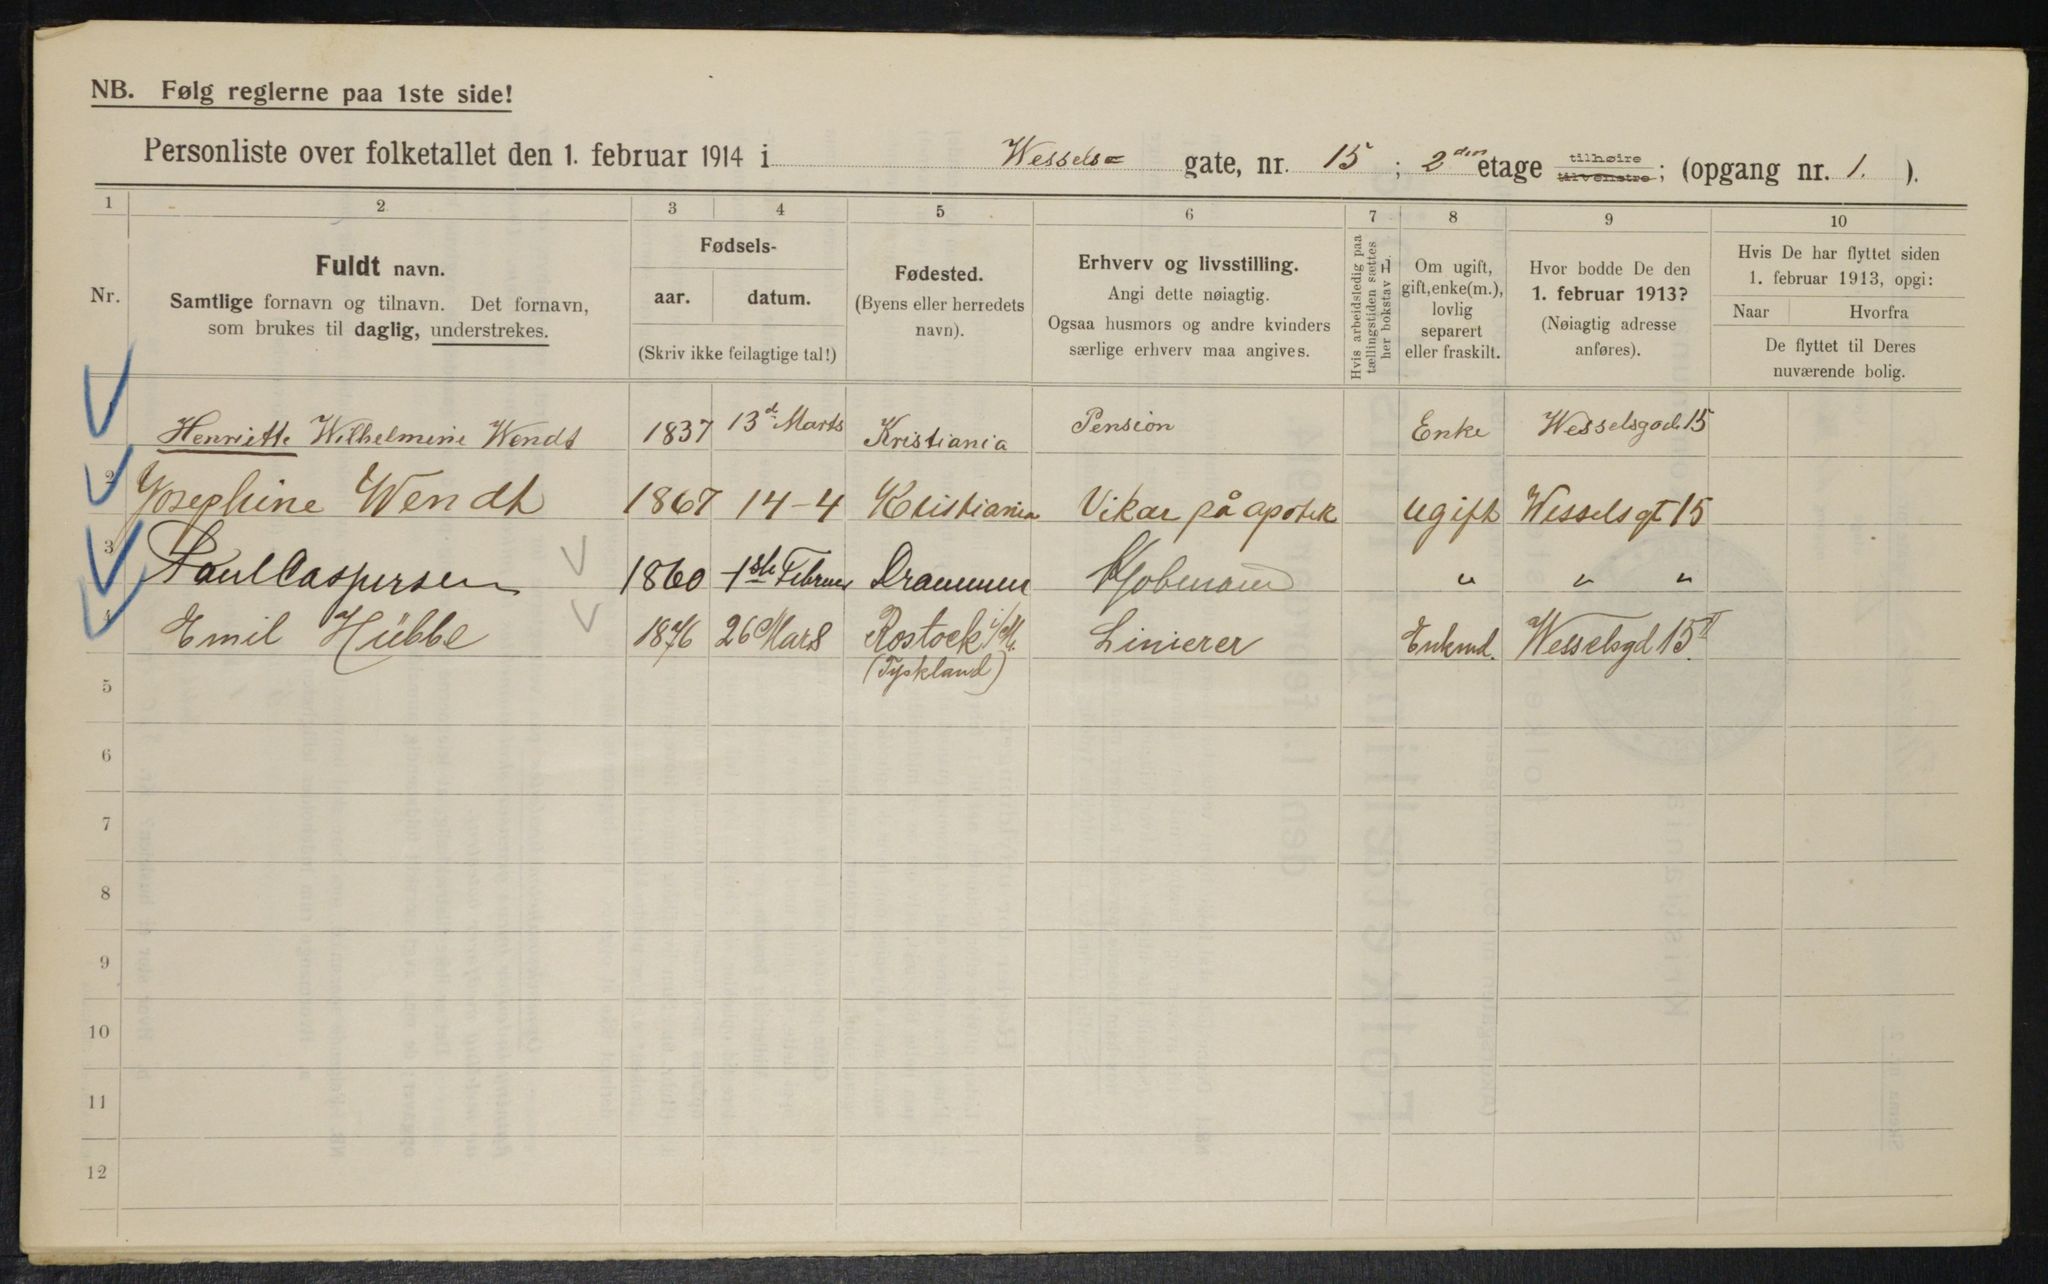 NB. Følg reglerne paa 1ste side!
Personliste over folketallet den 1. februar 1914 i Wessels= gate, nr. 15 ; 2den etage tilhøire tilvenstre ; (opgang nr. 1. ).
1 2 3 4 5 6 7 8 9 10
Nr.
Fuldt navn.
Samtlige fornavn og tilnavn. Det fornavn,
som brukes til daglig, understrekes.
Fødsels-
aar. datum.
(Skriv ikke feilagtige tal!)
Fødested.
(Byens eller herredets
navn).
Erhverv og livsstilling.
Angi dette nøiagtig.
Ogsaa husmors og andre kvinders
særlige erhverv maa angives.
Hvis arbeidsledig paa
tællingstiden sættes
her bokstav L.
Om ugift,
gift, enke(m.),
lovlig
separert
eller fraskilt.
Hvor bodde De den
1. februar 1913?
(Nøiagtig adresse
anføres).
Hvis De har flyttet siden
1. februar 1913, opgi:
Naar Hvorfra
De flyttet til Deres
nuværende bolig.
Henriette Wilhelmine Wendt 1837 13d Marts Kristiania Pension Enke Wesselsgade 15
2 Josephine Wendt 1867 14-4 Kristiania Vikar på apotek ugift Wesselsgt 15
3 Paul Caspersen 1860 1ste Februar Drammen Kjøbmand " " "
4 Emil Hübbe 1876 26 Mars Rostock i/M. Linierer Enkmd. Wesselsgd 15 II
(Tyskland)
5
6
7
8
9
10
11
12